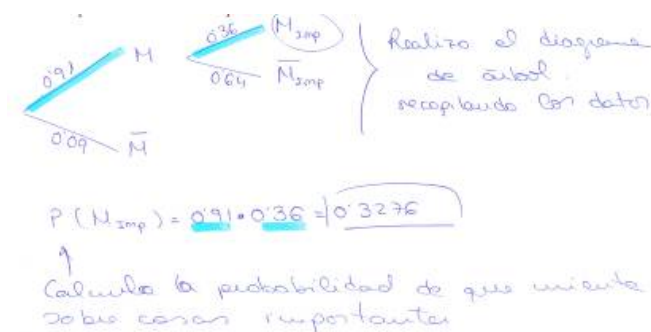 0'91 M
0'09 M̅
0'36 M_Imp
0'64 M̅_Imp
Realizo el diagrama
de árbol
recopilando los datos
P(M_Imp) = 0'91 · 0'36 = 0'3276
Calculo la probabilidad de que mienta
sobre cosas importantes